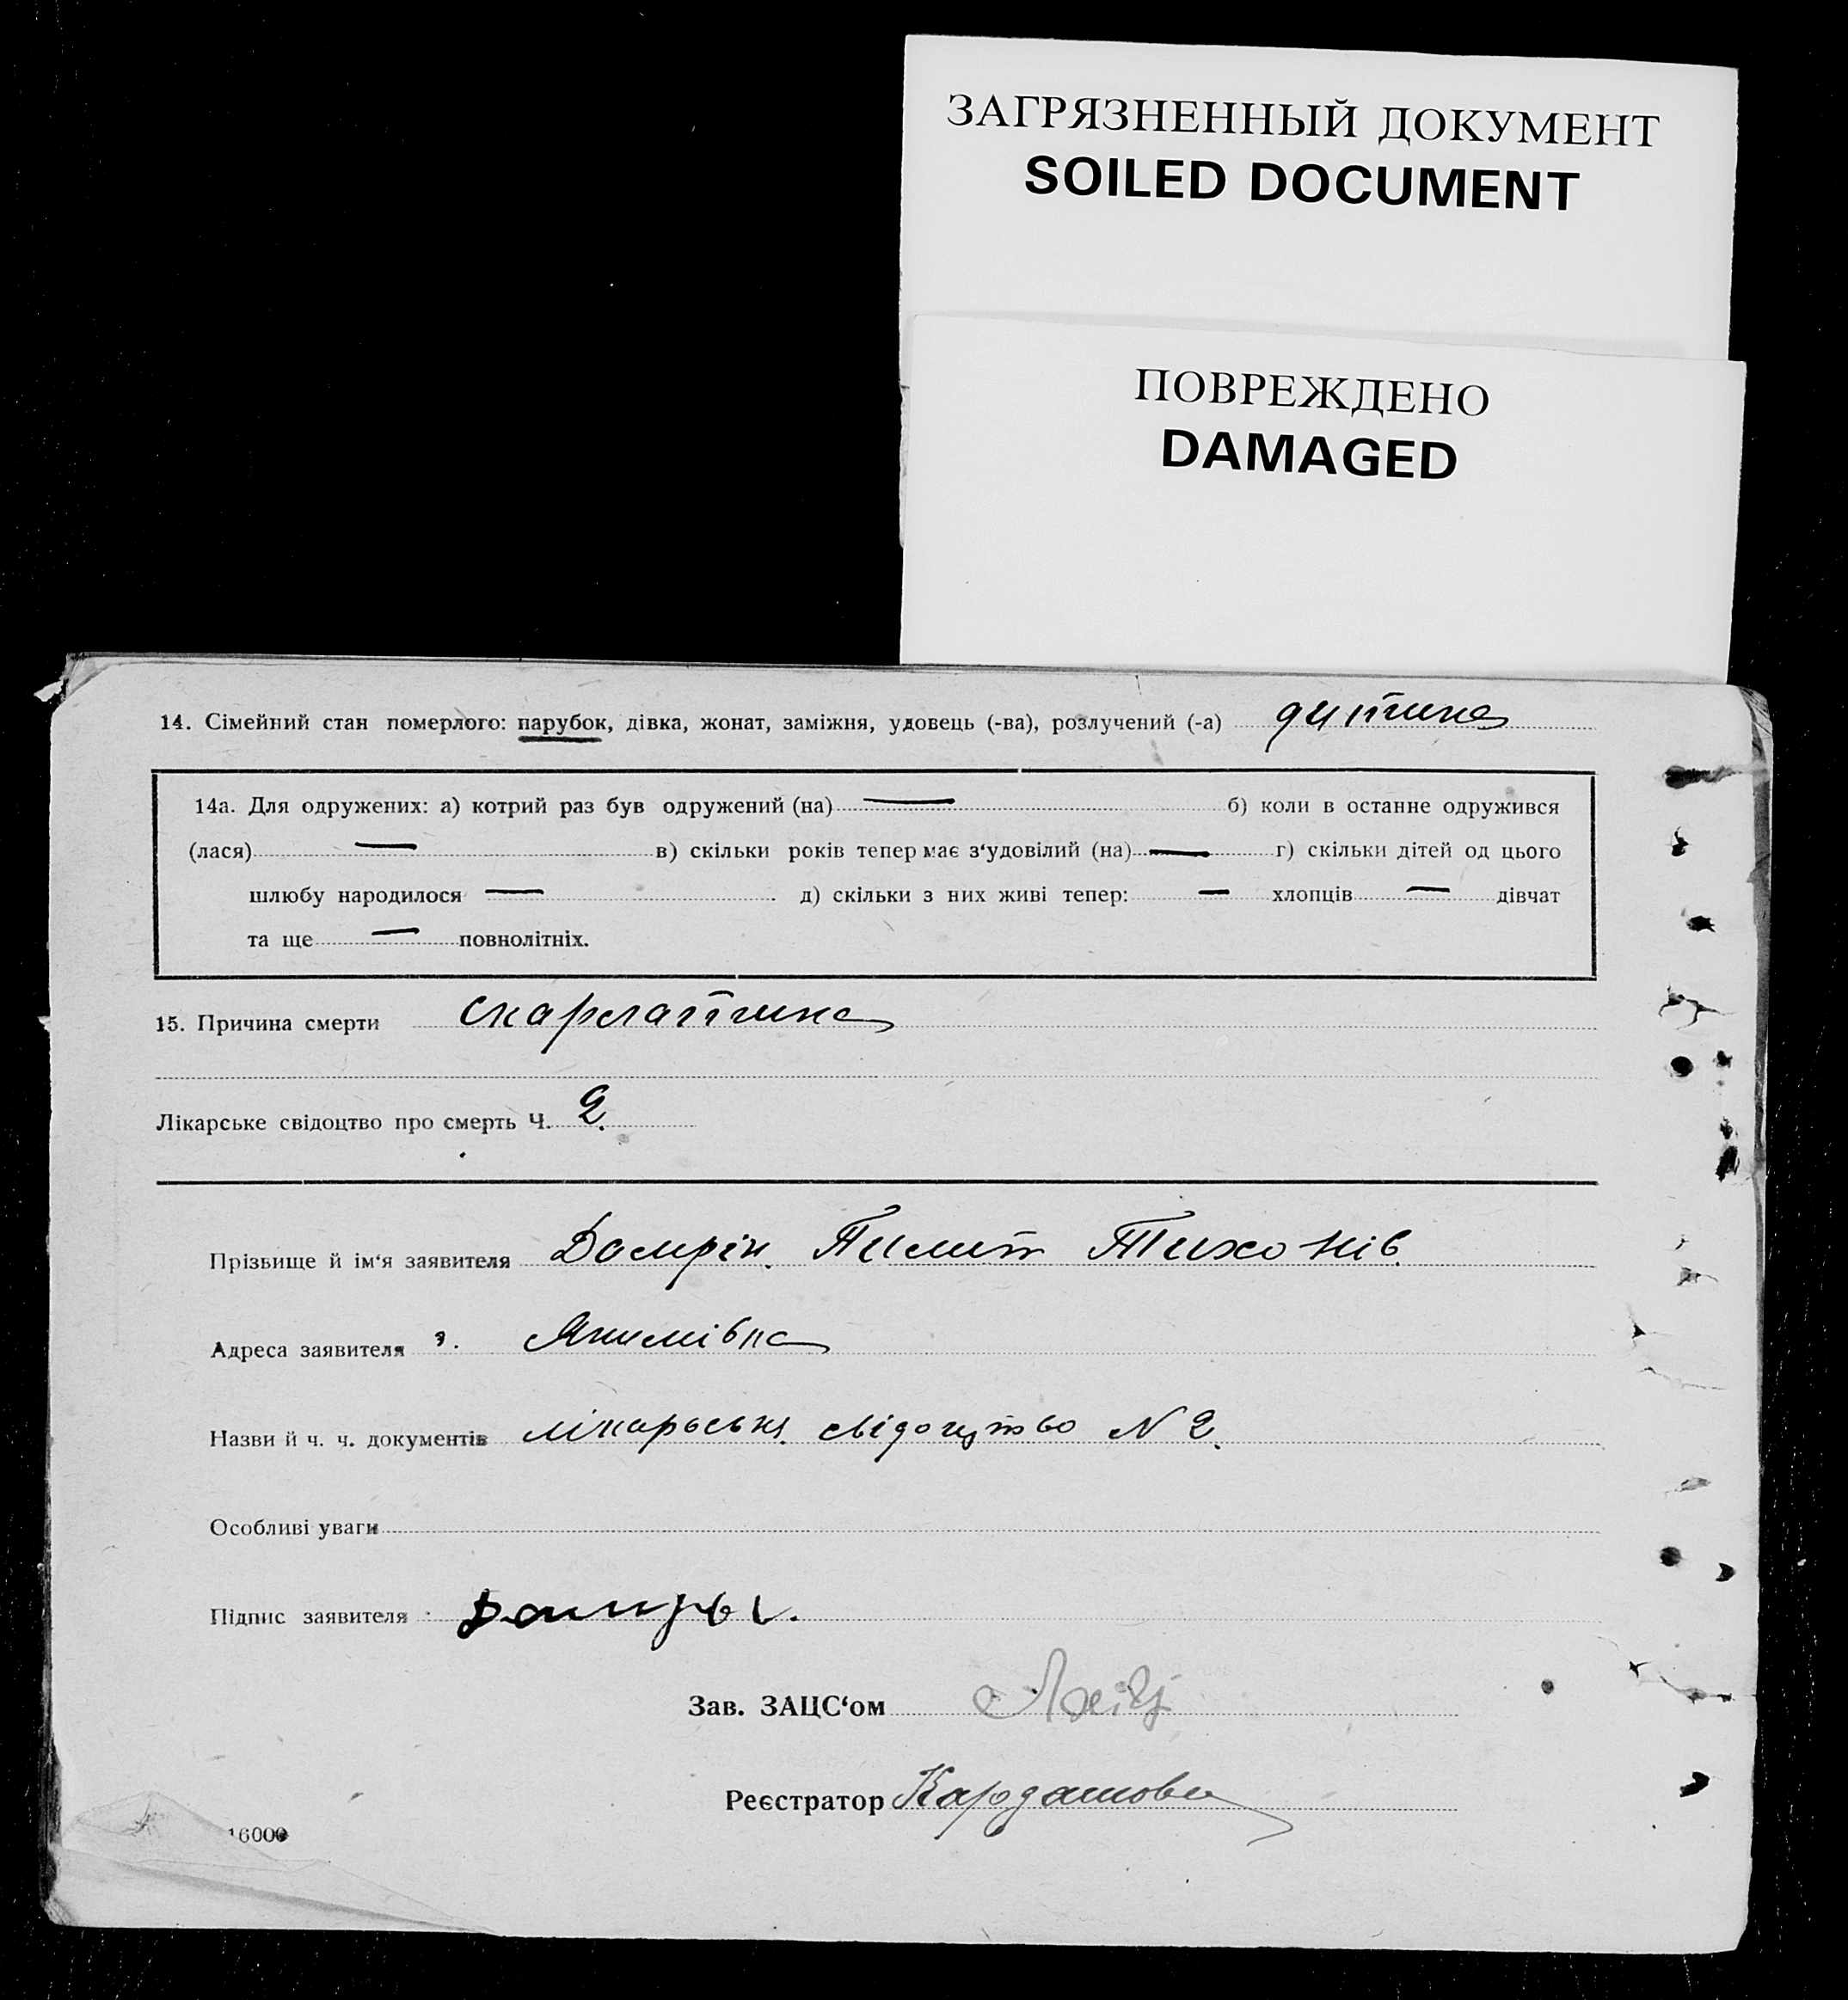 ЗАГРЯЗНЕННЫЙ ДОКУМЕНТ
SOILED DOCUMENT
ПОВРЕЖДЕНО
DAMAGED
14. Сімейний стан померлого: парубок, дівка, жонат, заміжня, удовець (-ва), розлучений (-а) дитина
14а. Для одружених: а) котрий раз був одружений (на) — б) коли в останнє одружився
(лася) — в) скільки років тепер має з‘удовілий (на) — г) скільки дітей од цього
шлюбу народилося — . д) скільки з них живі тепер: — хлопців — дівчат
та ще — повнолітніх.
15. Причина смерти скарлатина
Лікарське свідоцтво про смерть Ч. 2.
Прізвище й ім‘я заявителя Тихонів.
Адреса заявителя з. Якимівка
Назви й ч. ч. документів лікарськ. свідоцтво N 2.
Особливі уваги
Підпис заявителя
Зав. ЗАЦС‘ом
Реєстратор Кардашова
16000